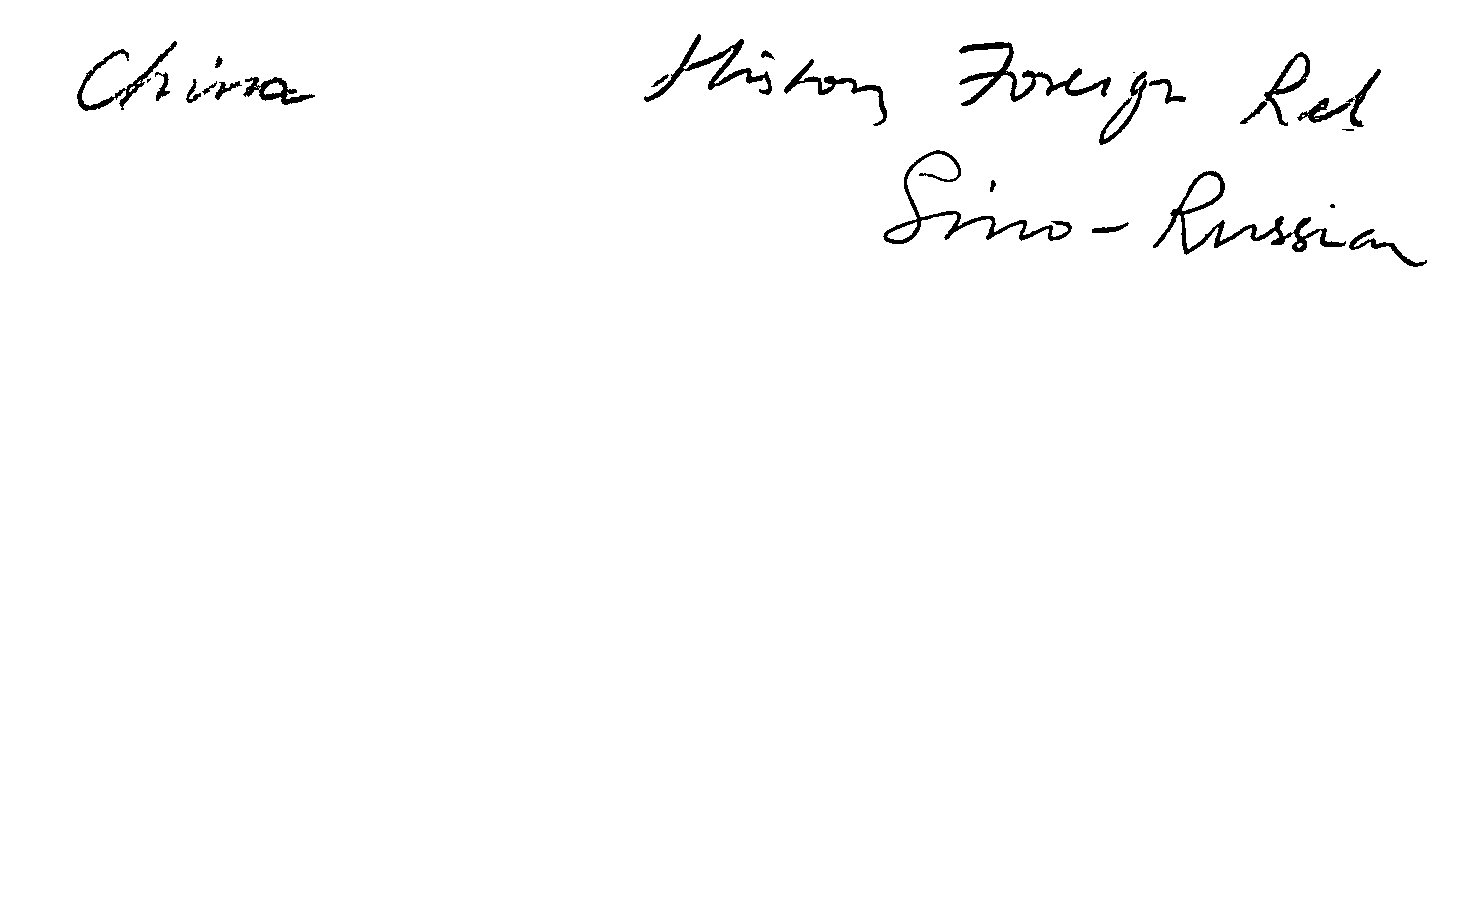 China History Foreign Rel
Sino-Russian